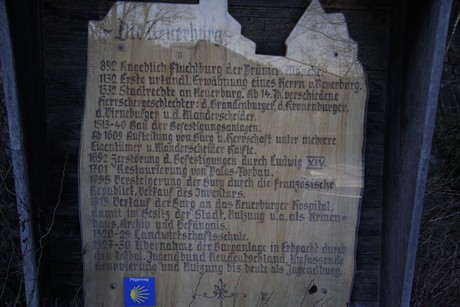 Die Neuerburg
882 Angeblich Fluchtburg der Prümer Mönche.
1132 Erste urkundl. Erwähnung eines Herrn v. Neuerburg.
1332 Stadtrechte an Neuerburg. Ab 14. Jh. verschiedene
Herrschergeschlechter: d. Brandenburger, d. Kronenburger,
d. Virneburger u. d. Manderscheider.
1513-40 Bau der Befestigungsanlagen.
Ab 1609 Aufteilung von Burg u. Herrschaft unter mehrere
Eigentümer u. Manderscheider Hälfte.
1692 Zerstörung d. Befestigungen durch Ludwig XIV.
1701 Restaurierung von Palas-Vorbau.
1795 Versteigerung der Burg durch die französische
Republik. Verkauf des Inventars.
1818 Verkauf der Burg an das Neuerburger Hospital,
damit im Besitz der Stadt. Nutzung u.a. als Armen-
haus, Archiv und Gefängnis.
1920-25 Landwirtschaftsschule.
1927-30 Übernahme der Burganlage in Erbpacht durch
den kathol. Jugendbund Neudeutschland. Umfassende
Renovierung und Nutzung bis heute als Jugendburg.
Pilgerweg